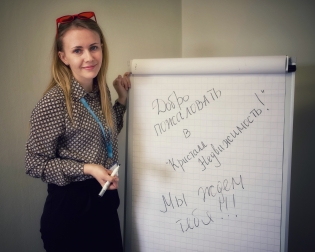 Добро
пожаловать
в
"Кристалл
Недвижимость!"
Мы ждем
тебя!!!